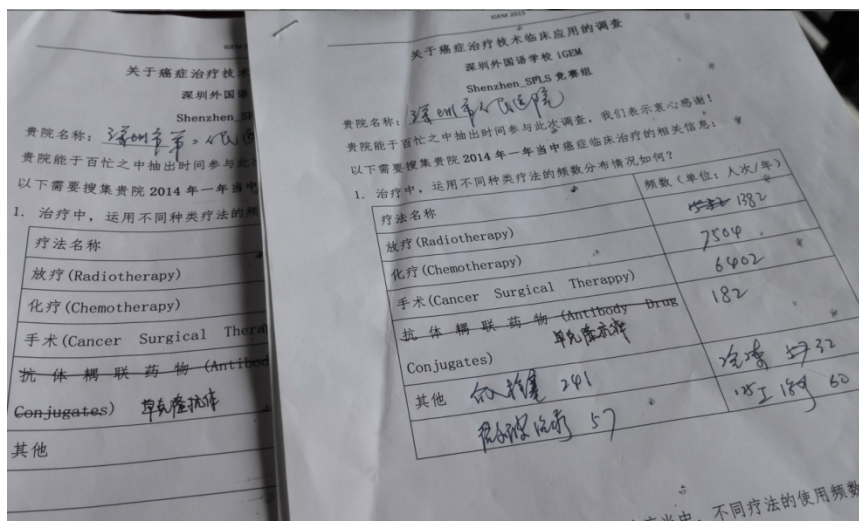 IGEM 2015
关于癌症治疗技术
深圳外国语
Shenzhen_SF
贵院名称：深圳市第二人民医
贵院能于百忙之中抽出时间参与此
以下需要搜集贵院 2014 年一年当中
1. 治疗中，运用不同种类疗法的频
疗法名称
放疗(Radiotherapy)
化疗(Chemotherapy)
手术(Cancer Surgical Thera
抗体耦联药物 (Antibod
Conjugates) 单克隆抗体
其他
IGEM 2015
关于癌症治疗技术临床应用的调查
深圳外国语学校 iGEM
Shenzhen_SFLS 竞赛组
贵院名称：深圳市人民医院
贵院能于百忙之中抽出时间参与此次调查，我们表示衷心感谢！
以下需要搜集贵院 2014 年一年当中癌症临床治疗的相关信息：
1. 治疗中，运用不同种类疗法的频数分布情况如何？
疗法名称 频数（单位：人次/年）
放疗(Radiotherapy) 1382
化疗(Chemotherapy) 7504
手术(Cancer Surgical Therappy) 6402
抗体耦联药物 (Antibody Drug 182
Conjugates) 单克隆抗体
其他 241 冷冻 32
微波治疗 57 125I 60
当中，不同疗法的使用频数